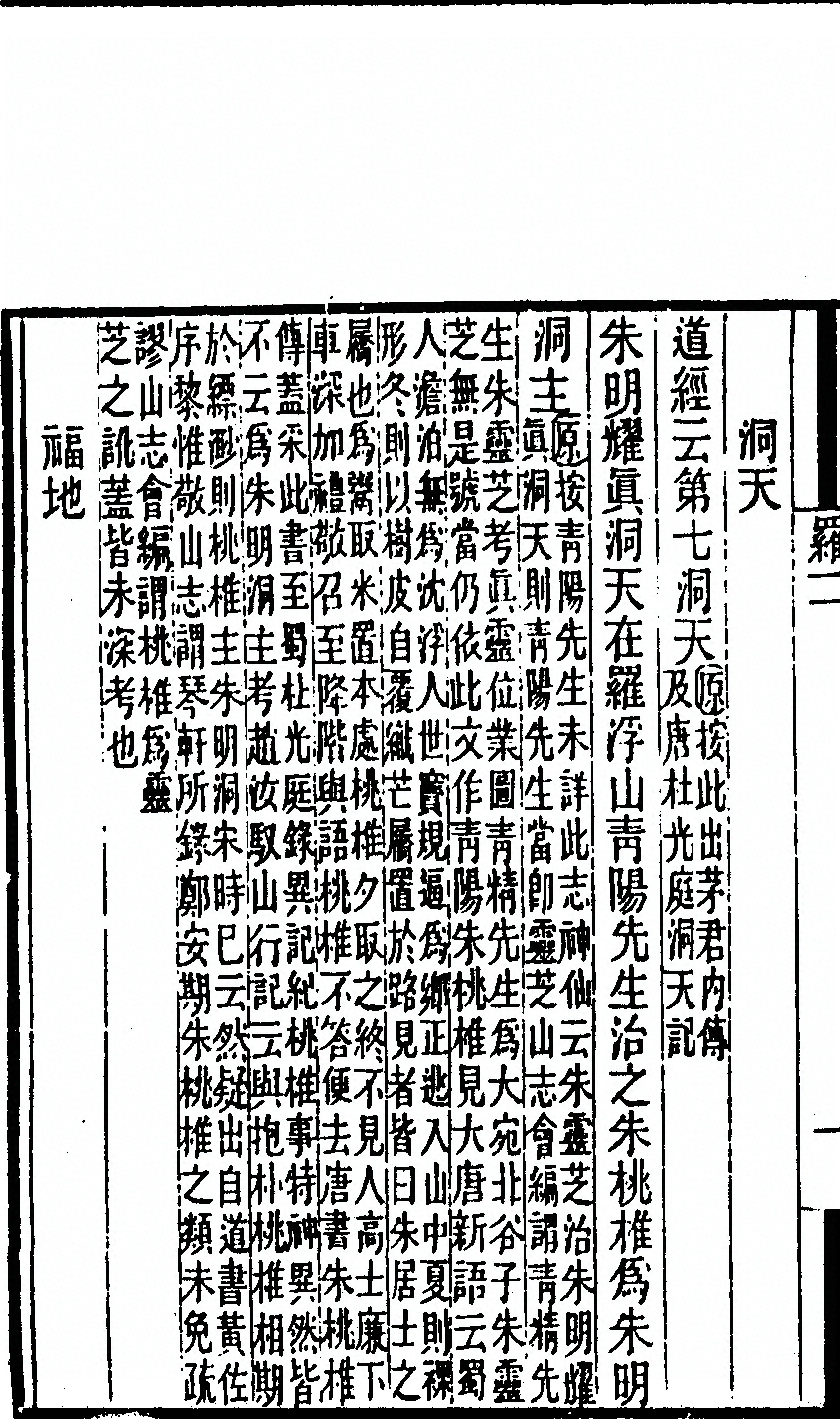 羅
洞天
道經云第七洞天
原按此出茅君內傳
及唐杜光庭洞天記
朱明耀眞洞天在羅浮山青陽先生治之朱桃椎爲朱明
洞主
原按青陽先生未詳此志神仙云朱靈芝治朱明耀
眞洞天則青陽先生當卽靈芝山志會編謂青精先
生朱靈芝考眞靈位業圖青精先生爲大宛北谷子朱靈
芝無是號當仍依此文作青陽朱桃椎見大唐新語云蜀
人澹泊無爲沈浮人世竇規逼爲鄉正逃入山中夏則裸
形冬則以樹皮自覆織芒屩置於路見者皆曰朱居士之
屩也爲鬻取米置本處桃椎夕取之終不見人高士廉下
車深加禮敬召至降階與語桃椎不答便去唐書朱桃椎
傳蓋采此書至蜀杜光庭錄異記紀桃椎事特神異然皆
不云爲朱明洞主考趙汝馭山行記云與抱朴桃椎相期
於縹緲則桃椎主朱明洞宋時已云然疑出自道書黃佐
序黎惟敬山志謂琴軒所錄鄭安期朱桃椎之類未免疏
謬山志會編謂桃椎爲靈
芝之訛蓋皆未深考也
福地